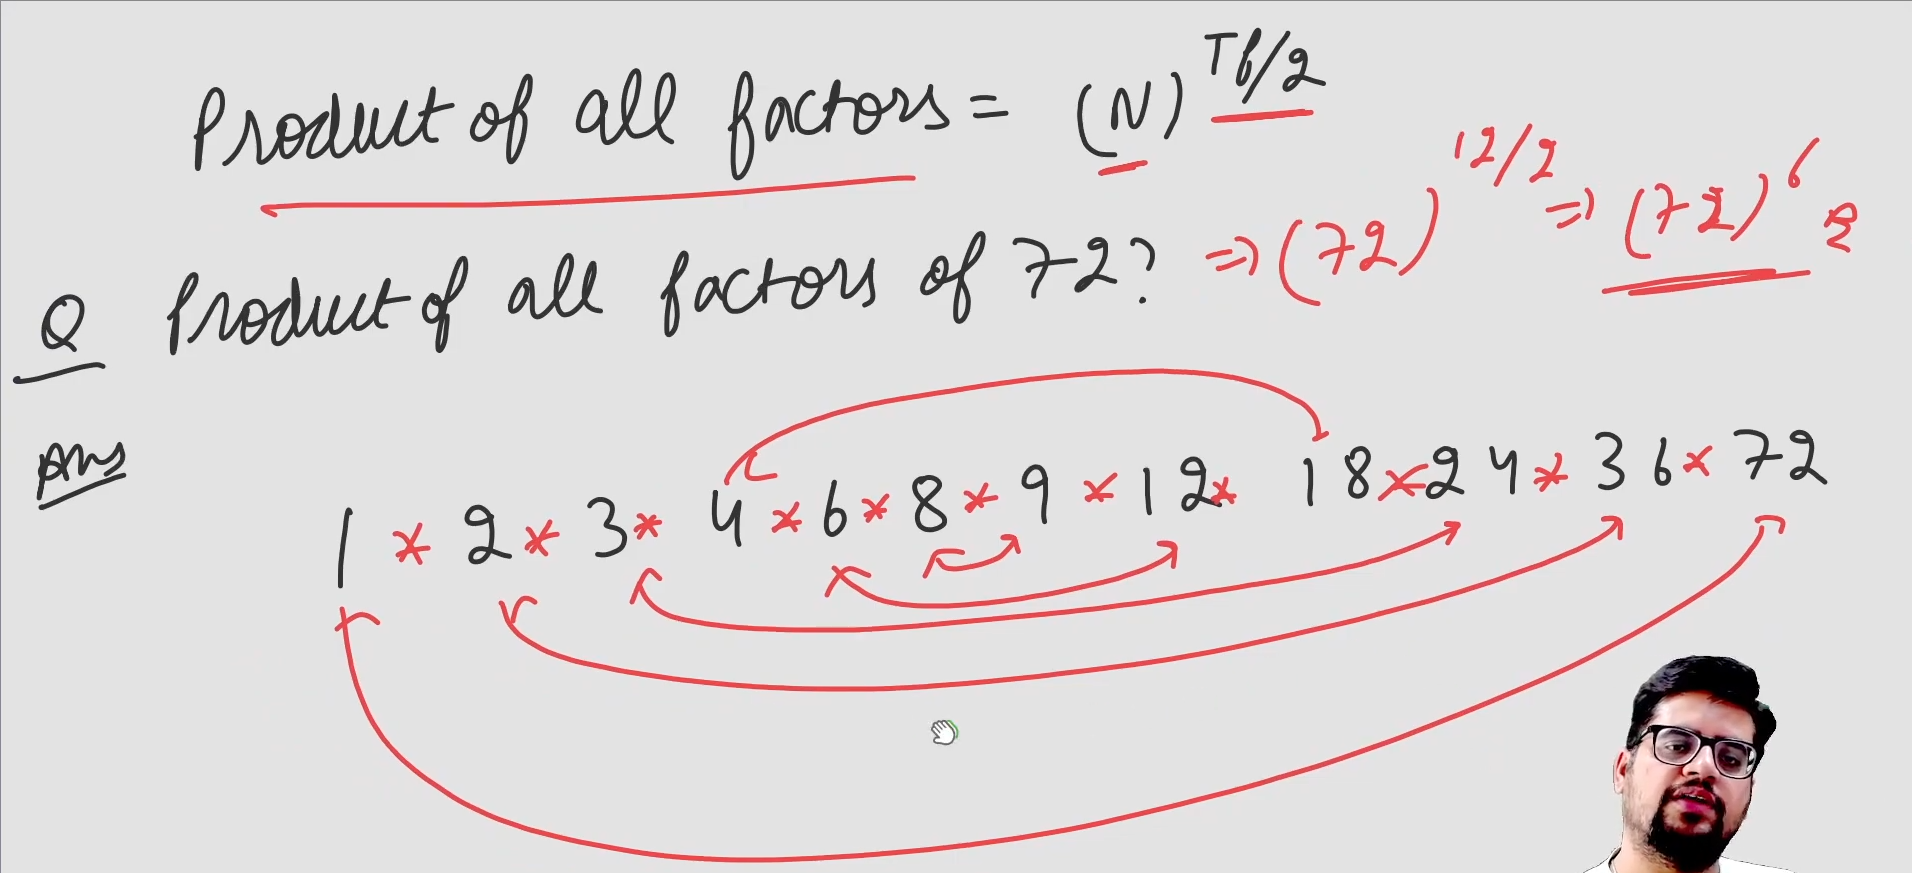 Product of all factors = (N)^Tf/2
Q Product of all factors of 72? ⇒ (72)^12/2 ⇒ (72)^6
Ans
1 * 2 * 3 * 4 * 6 * 8 * 9 * 12 * 18 * 24 * 36 * 72